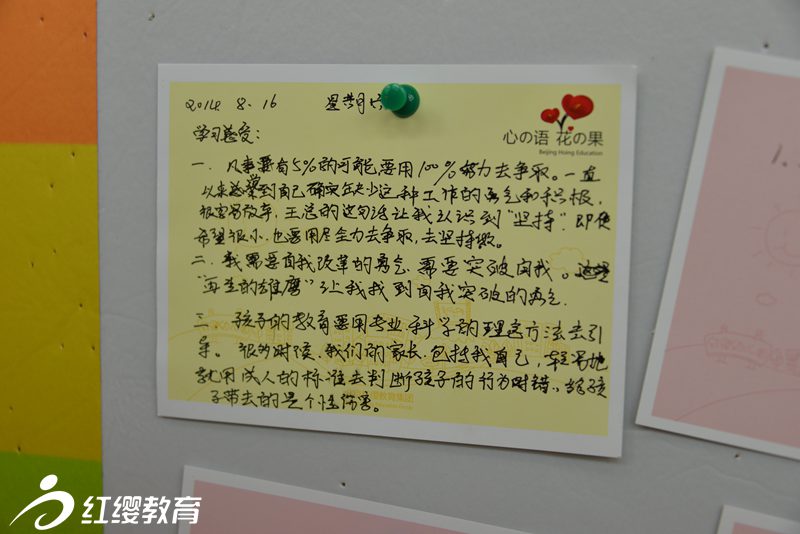 2014 8.16 星期六
心の语 花の果
Beijing Hoing Education
学习感受：
一、凡事要有5%的可能要用100%努力去争取。一直
以来感觉到自己确实缺少这种工作的勇气和积极，
很容易放弃，王总的这句话让我认识到“坚持”．即使
希望很小．也要用尽全力去争取，去坚持做。
二．我需要自我改革的勇气．需要突破自我。这里
“再生的雄鹰”让我找到自我突破的勇气．
三．孩子的教育要用专业．科学的理念方法去引
导。很多时候．我们的家长．包括我自己，轻易地
就用成人的标准去判断孩子的行为对错．给孩
子带去的是个性伤害。
教育集团
红缨教育
1.